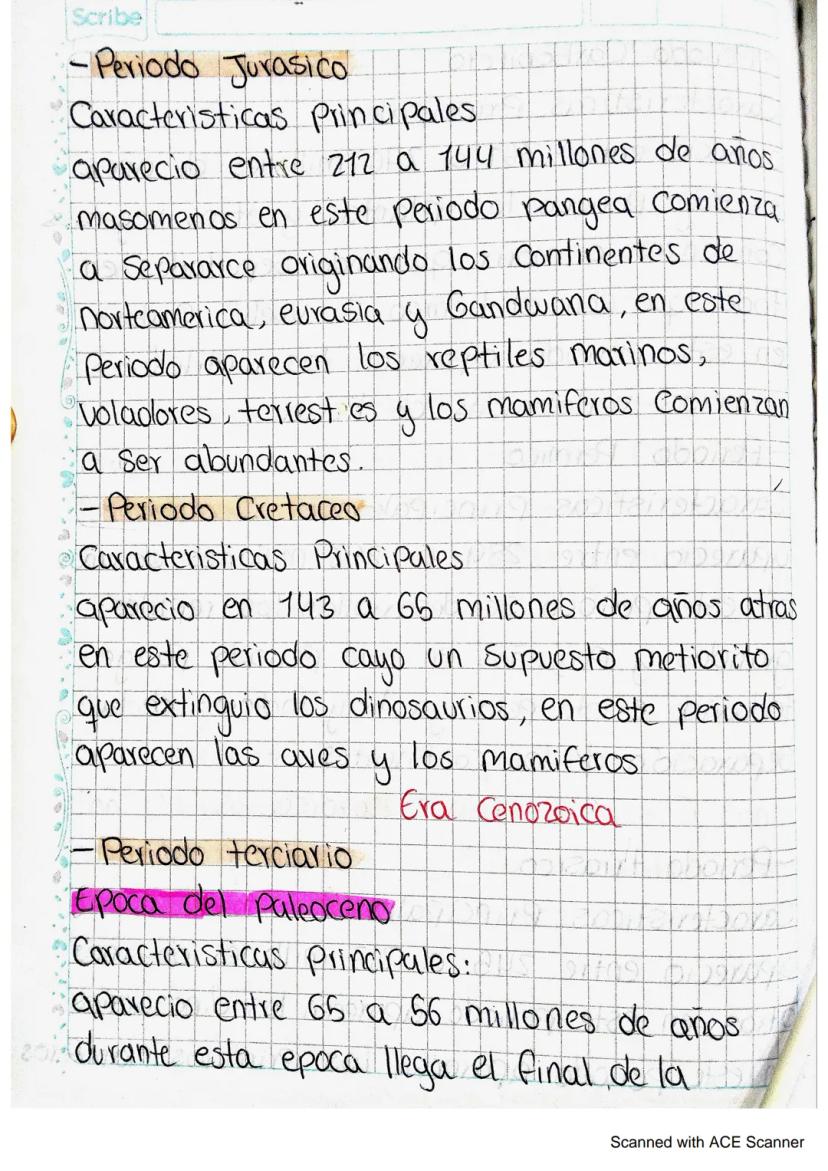 Scribe
- Periodo Jurasico
Caracteristicas Principales
aparecio entre 212 a 144 millones de años
masomenos en este Periodo pangea comienza
a Separarce originando los continentes de
norteamerica, eurasia y Gandwana, en este
Periodo aparecen los reptiles marinos,
voladores, terrest es y los mamiferos comienzan
a ser abundantes.
- Periodo Cretaceo
Caracteristicas Principales
aparecio en 143 a 66 millones de años atras
en este periodo cayo un supuesto metiorito
que extinguio los dinosaurios, en este periodo
aparecen las aves y los mamiferos
Era Cenozoica
- Periodo terciario
Epoca del Paleoceno
Caracteristicas principales:
aparecio entre 65 a 56 millones de años
durante esta epoca llega el final de la
Scanned with ACE Scanner